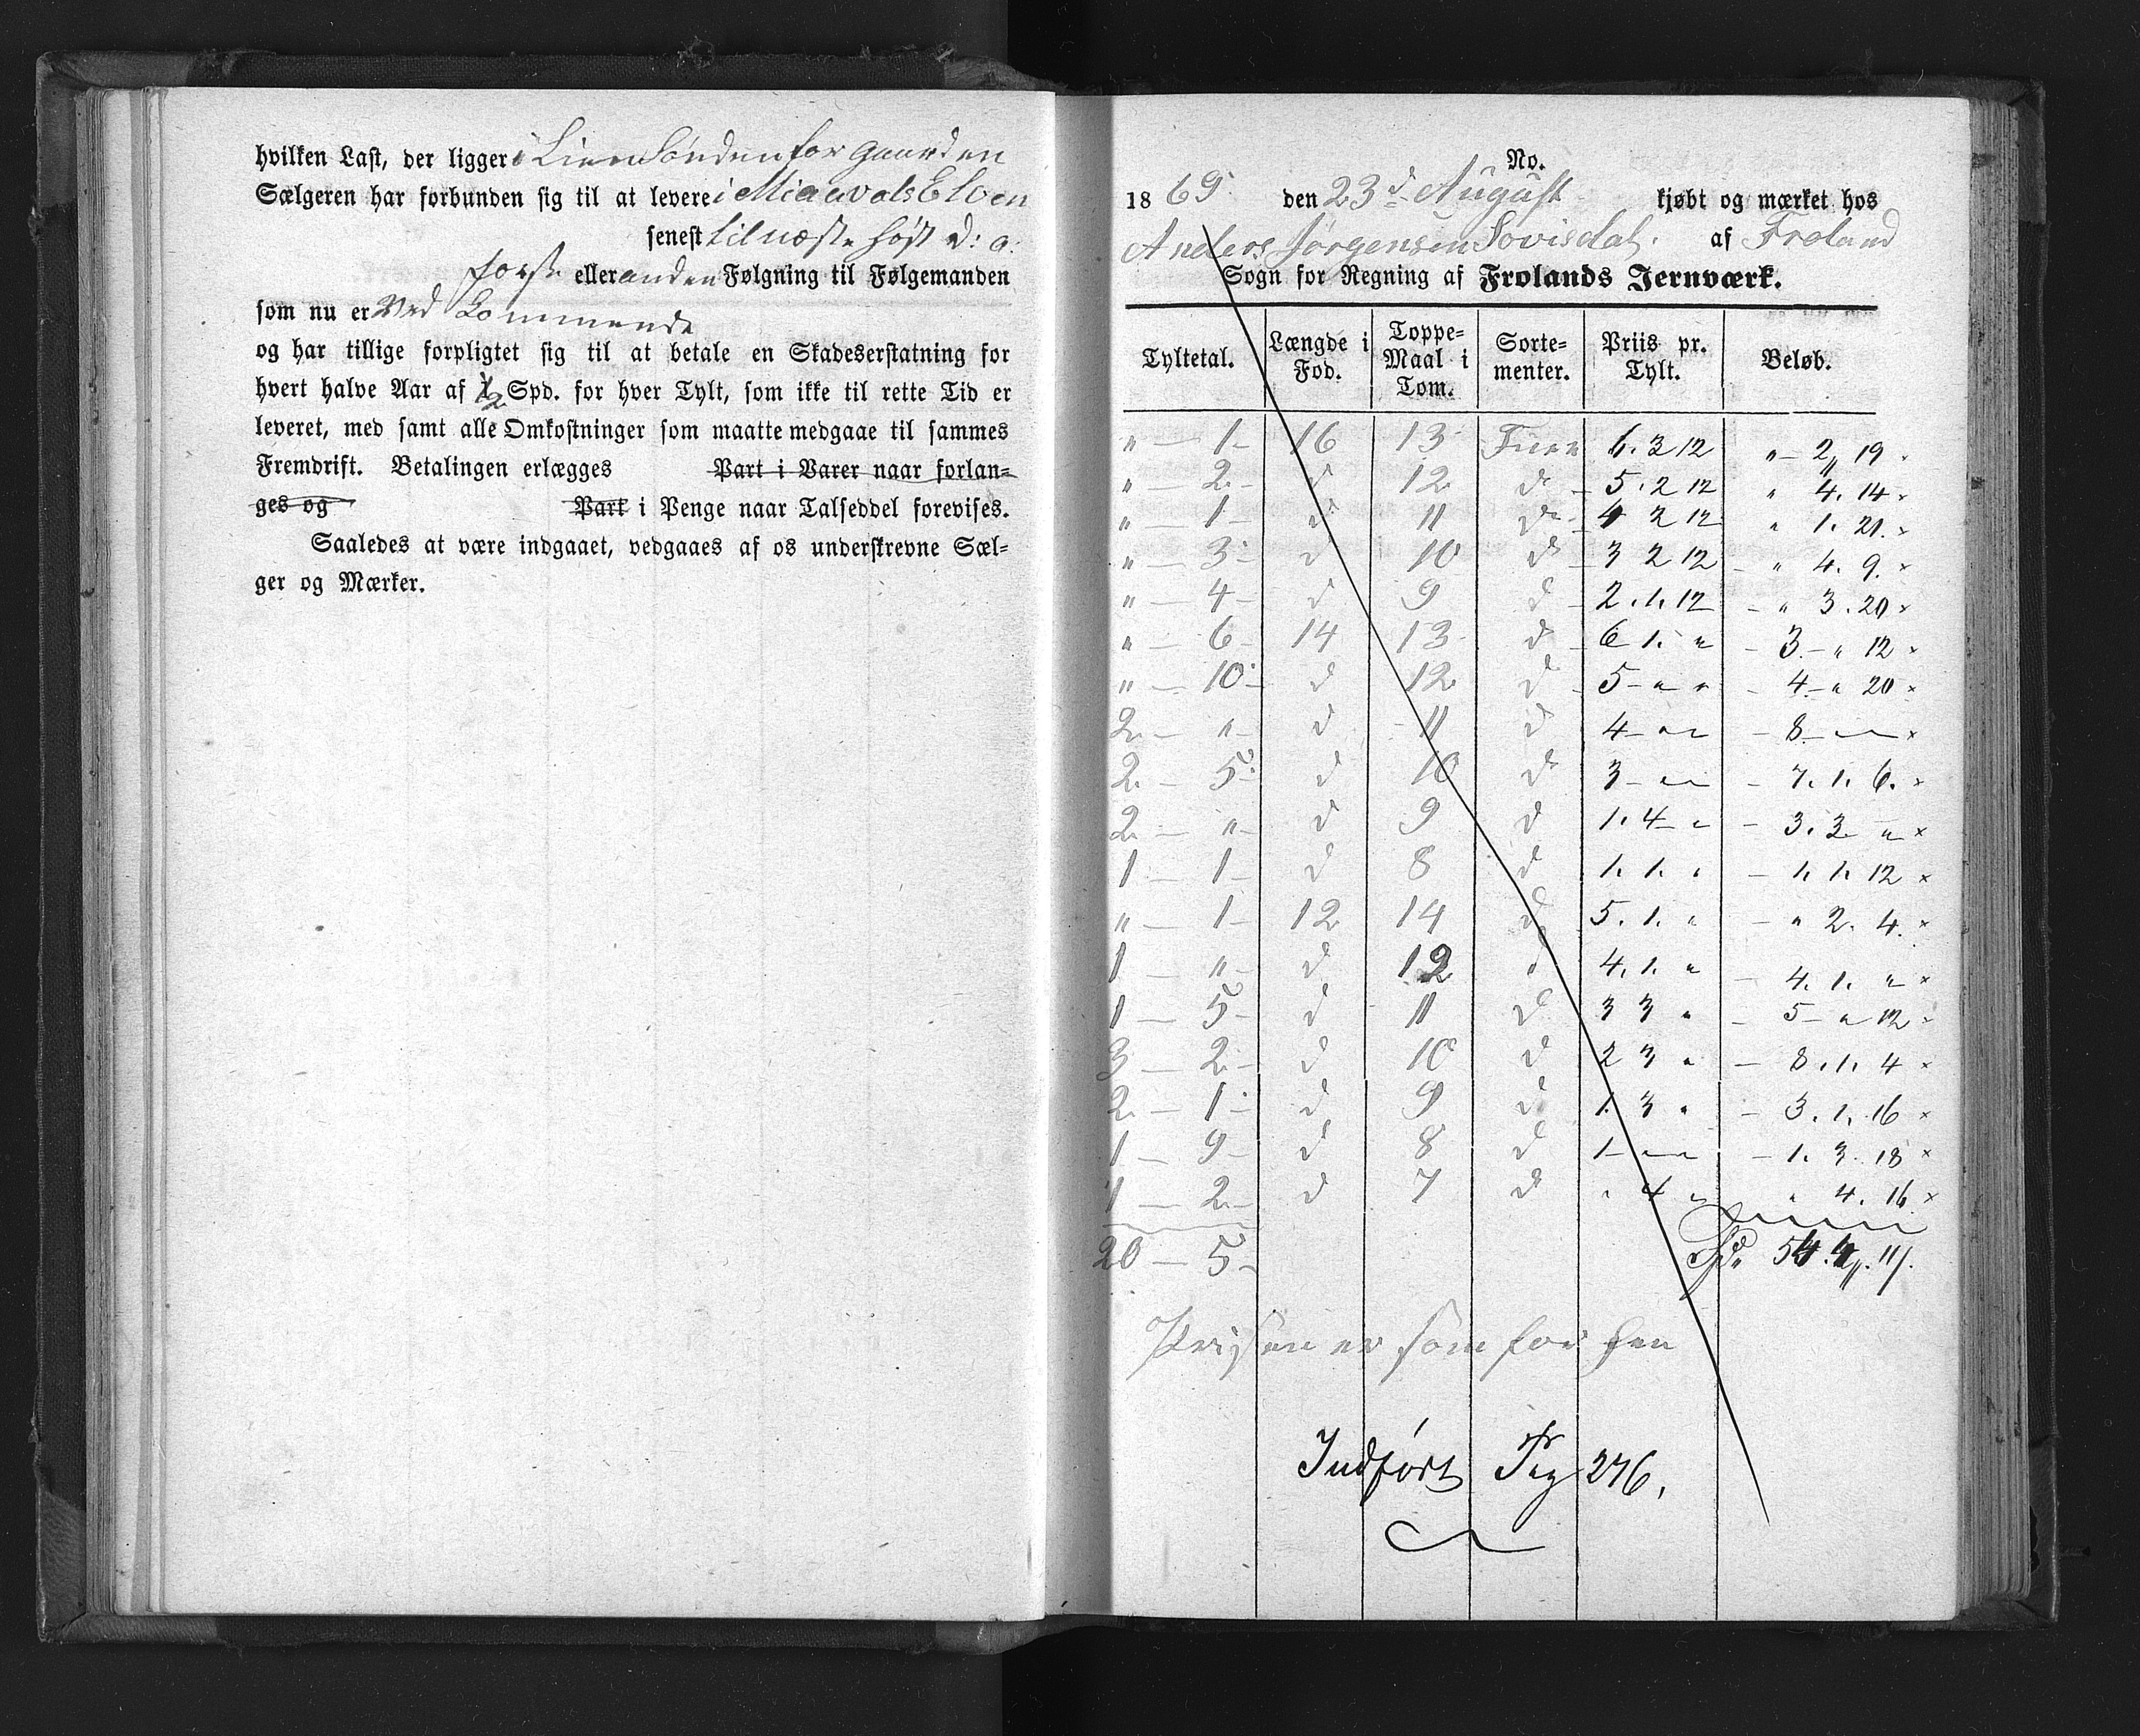 hvilken Last, der ligger i Lien Sønden for Gaarden
Sælgeren har forbunden sig til at levere i MiaavolsElven
senest til næste høst d: a:
første eller anden Følgning til Følgemanden
som nu er Ved Kommende
og har tillige forpligtet sig til at betale en Skadeserstatning for
hvert halve Aar af ½ Spd. for hver Tylt, som ikke til rette Tid er
leveret, med samt alle Omkostninger som maatte medgaae til sammes
Fremdrift. Betalingen erlægges Part i Varer naar forlan=
ges og Part i Penge naar Talseddel forevises.
Saaledes at være indgaaet, vedgaaes af os underskrevne Sæl=
ger og Mærker.
No.
1869 den 23d August kjøbt og mærket hos
Anders Jørgensen Søvisdal. af Froland
Sogn for Regning af Frolands Jernværk.
Tyltetal. Længde i Fod. Toppe= Maal i Tom. Sorte= menter. Priis pr. Tylt. Beløb.
" — 1 - 16 13 Furu 6. 3 12 " - 2, 19
" — 2 - d 12 d 5. 2 12 " 4. 14
" — 1 - d 11 d 4 2 12 " 1. 21.
" — 3 - d 10 d 3 2 12 " 4. 9.
" — 4 - d 9 d 2. 1. 12 - " 3. 20
" — 6 - 14 13 d 6 1. " - 3. - " 12
" — 10 - d 12 d 5 - " " - 4 - " 20
2 — " - d 11 d 4 - " " - 8 - " "
2 — 5 - d 10 d 3 - " " - 7. 1. 6.
2 — " - d 9 d 1. 4 - " - 3. 3 "
1 — 1 - d 8 d 1. 1. " - 1. 1. 12
" — 1 - 12 14 d 5. 1. " - " 2. 4.
1 — " - d 12 d 4. 1. " - 4. 1. "
1 — 5 - d 11 d 3 3 " - 5 - " 12
3 — 2 - d 10 d 2 3 " - 8. 1. 4
2 — 1 - d 9 d 1. 3 " - 3. 1. 16
1 — 9 - d 8 d 1 - " " - 1. 3. 18
1 — 2 - d 7 d " 4 " " 4. 16
20 — 5 - Spd. 54. 4. 11.
Prisen er som for hen
Indført Pag 276.